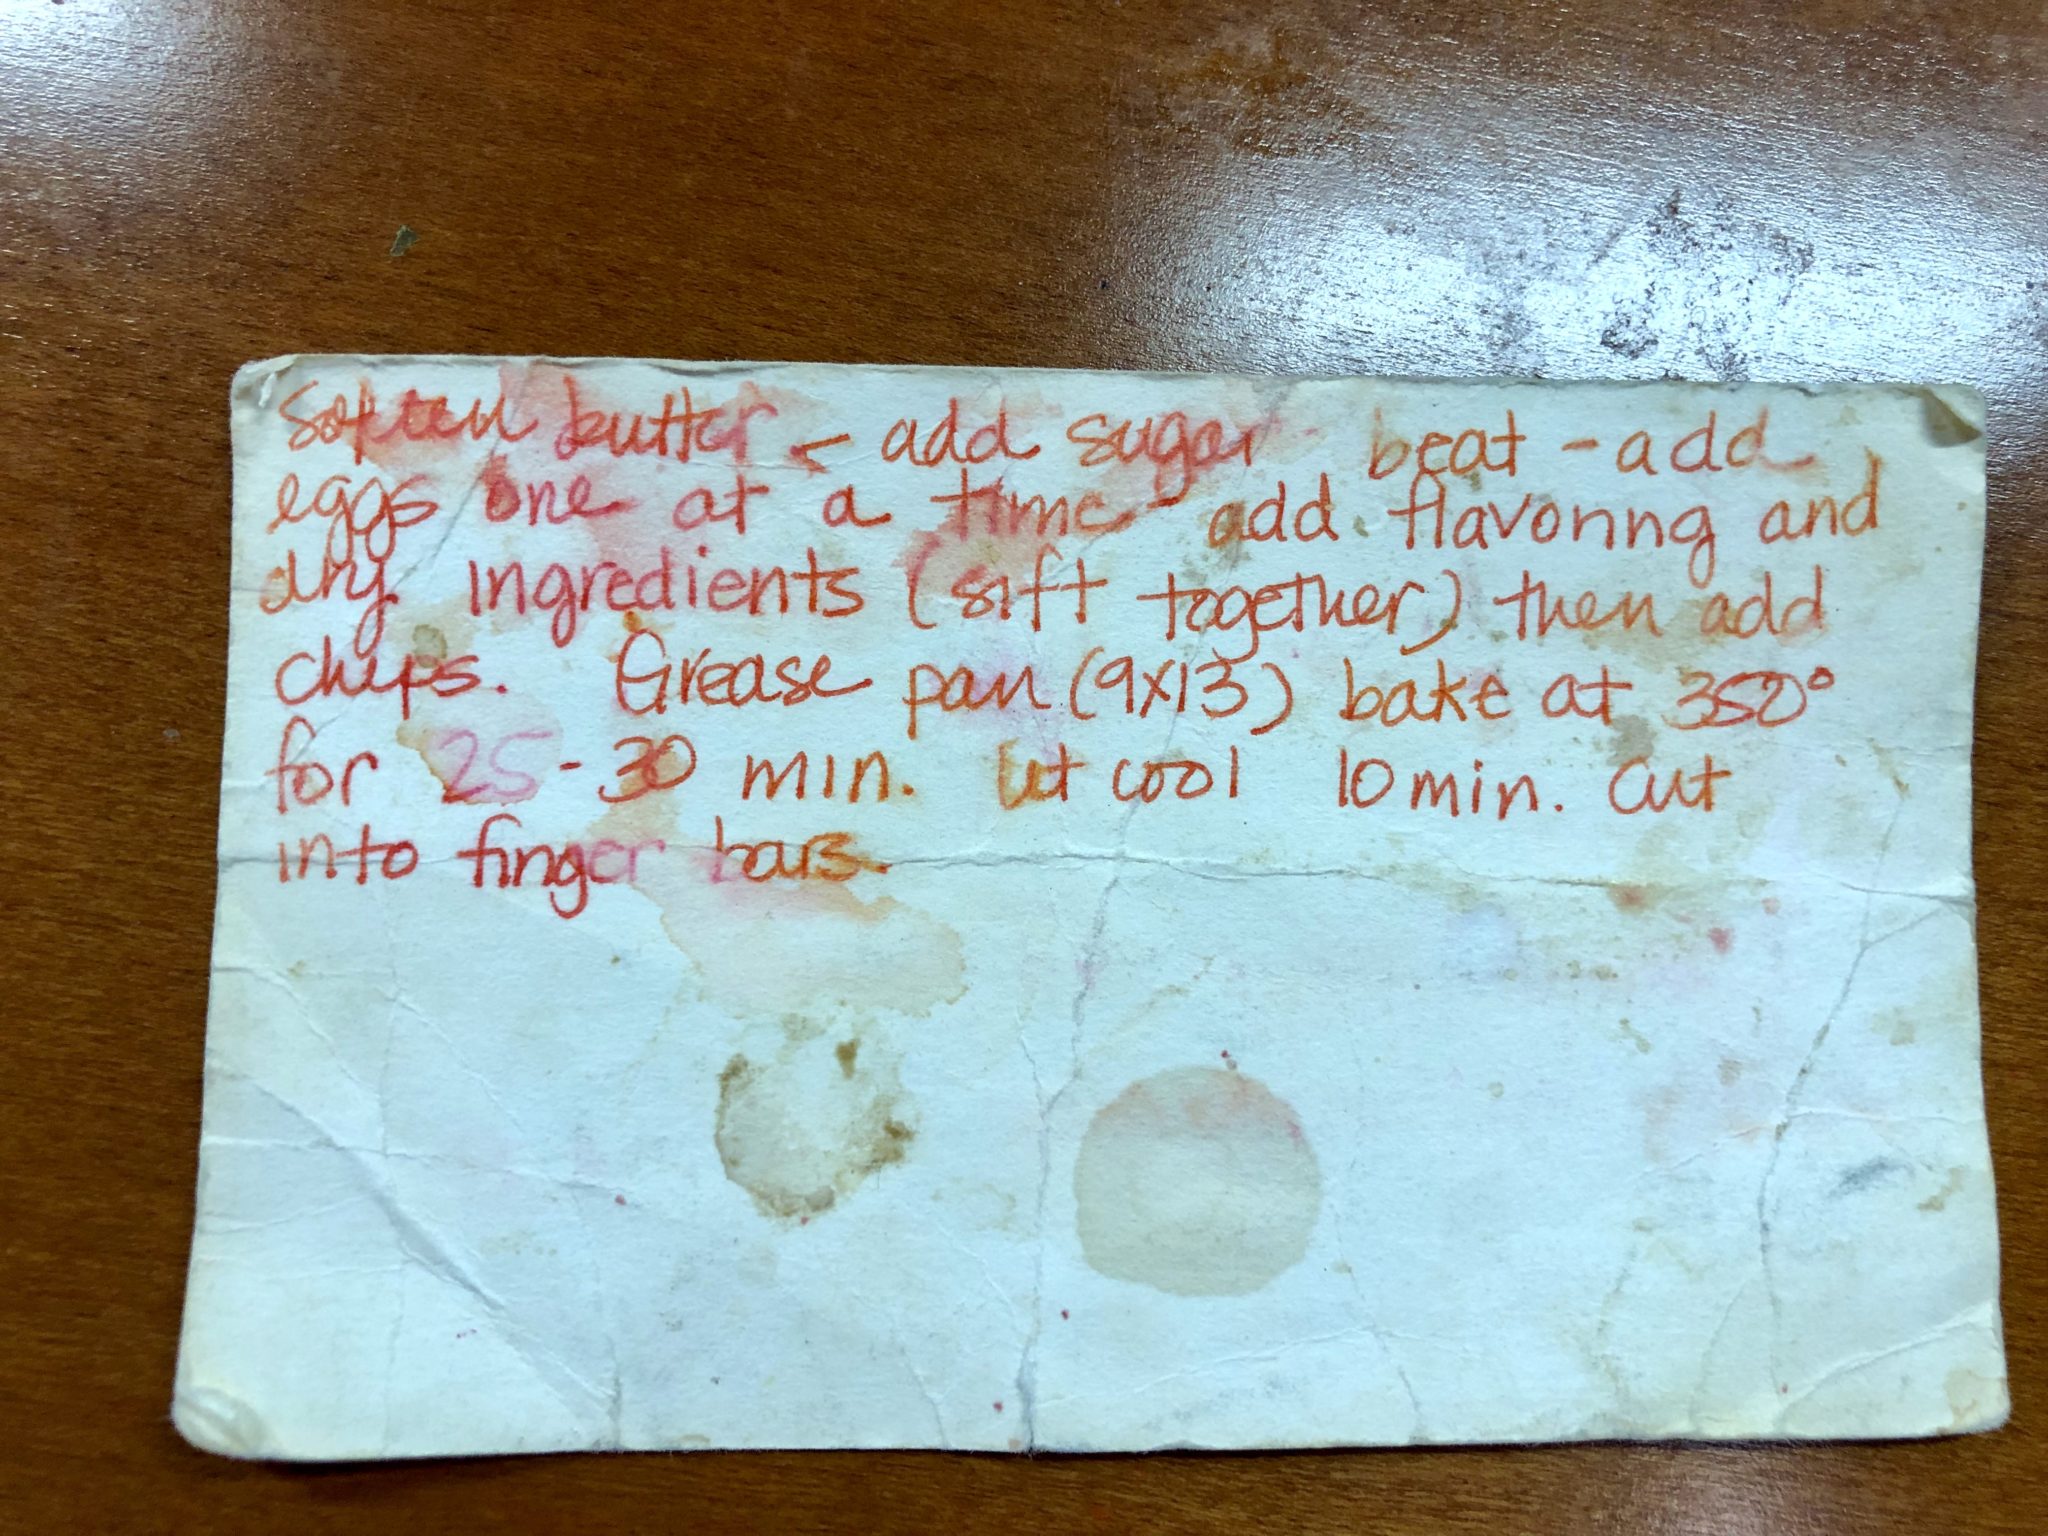 Soften butter - add sugar beat - add
eggs one at a time - add flavoring and
dry ingredients (sift together) then add
chips. Grease pan (9x13) bake at 350°
for 25-30 min. let cool 10 min. cut
into finger bars.